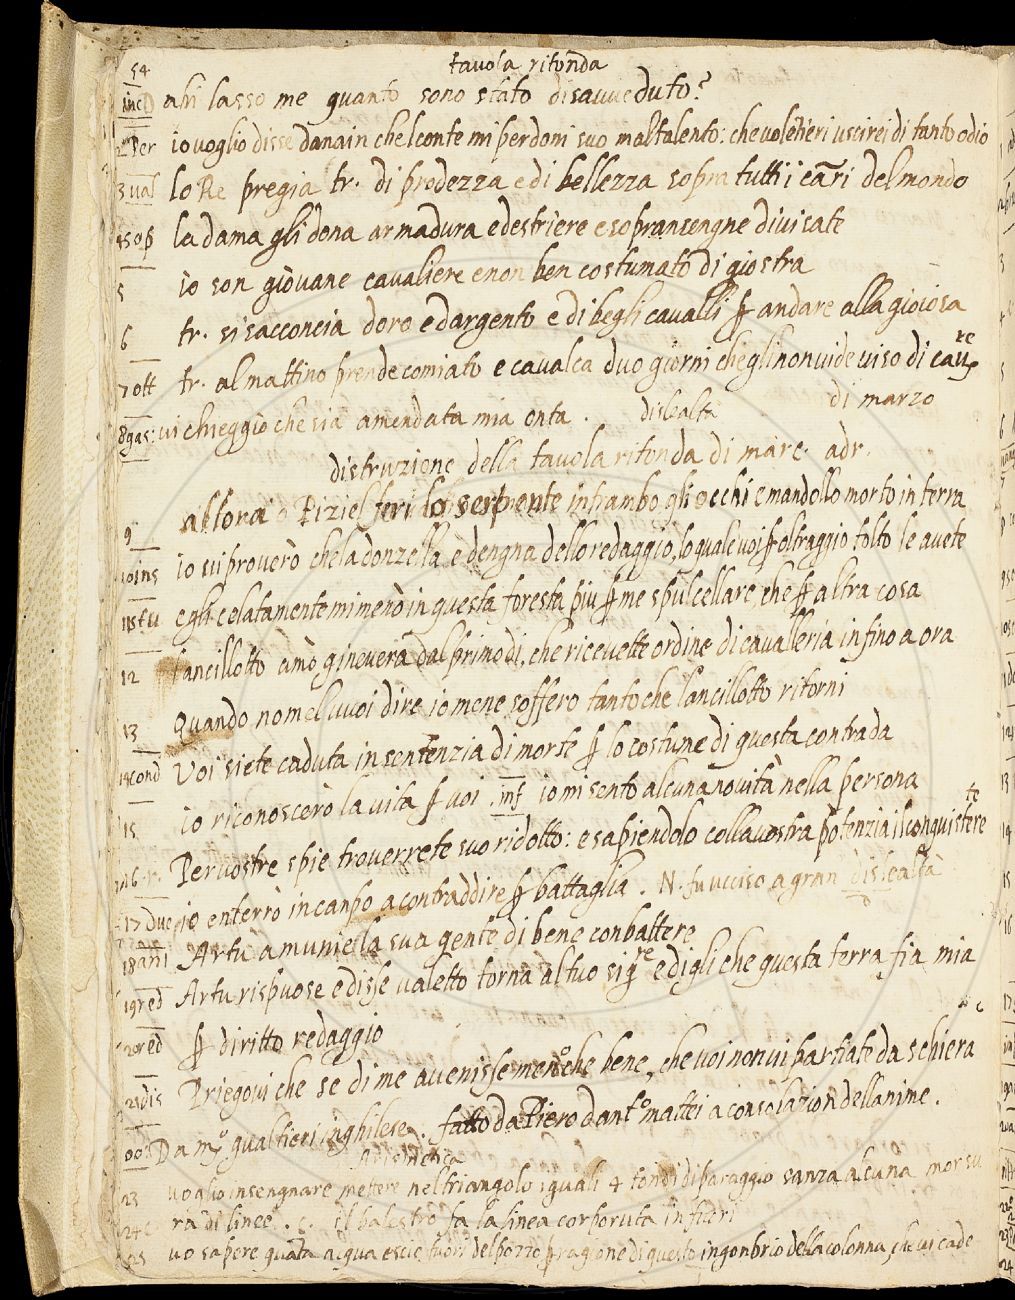 54 tavola ritonda
inc ahi lasso me quanto sono stato disavveduto?
2 Per io voglio disse danain chelconte mi perdoni suo maltalento: che voletieri uscirei di tanto odio
3 val lo Re pregia tr. di prodezza e di bellezza sopra tutti i cari del mondo
4 sop la dama gli dona armadura e destriere e sopransengne divisate
5 io son giovane cavaliere e non ben costumato di giostra
6 tr. si racconcia doro e dargento e di begli cavalli ꝑ andare alla gioiosa
7 ott tr. al mattino prende comiato e cavalca duo giorni che gli non vide viso di cavre
8 gas: vi chieggio che sia amendata mia onta. dislealta di marzo
distruzione della tavola ritonda di mare. adr.
9 allora Piziel feri lo serpente intrambo gli occhi e mandollo morto in terra
10 ins io vi proverò che la donzella è dengna dello redaggio, lo quale voi ꝑ oltraggio tolto le avete
11 stu egli celatamente mi menò in questa foresta piu ꝑ me spulcellare, che ꝑ altra cosa
12 lancillotto amò ginevera dal primo di, che ricevette ordine di cavalleria infino a ora
13 Quando nomel vuoi dire io mene soffero tanto che lancillotto ritorni
14 cond Voi siete caduta in sentenzia di morte ꝑ lo costume di questa contrada
15 io riconoscerò la vita ꝑ voi. inf io mi sento alcuna novità nella persona
16 Per vostre spie troverrete suo ridotto: e sapiendolo colla vostra potenzia il conquisterete
17 Due io enterrò in canpo a contraddire ꝑ battaglia. N. fu ucciso a gran dislealtà
18 ani Artù amunie la sua gente di bene conbattere
19 red Artu rispuose e disse valetto torna al tuo sigre e digli che questa terra fia mia
20 red ꝑ diritto redaggio
21 dis Priegovi che se di me avenisse meno che bene, che voi non vi partiate da schiera
00 Da mo gualtieri inghilese. fatto da Piero dant.o mattei a consolazion dellanime.
Arismetica
23 voglio insengnare mettere nel triangolo iguali 4 tondi di paraggio sanza alcuna morsu
24 ra di linee. c. il balestro fa la linea corporuta in fieri
25 vo sapere quata acqua escie fuori del pozzo ꝑ ragione di questo ingonbrio della colonna, che vi cade